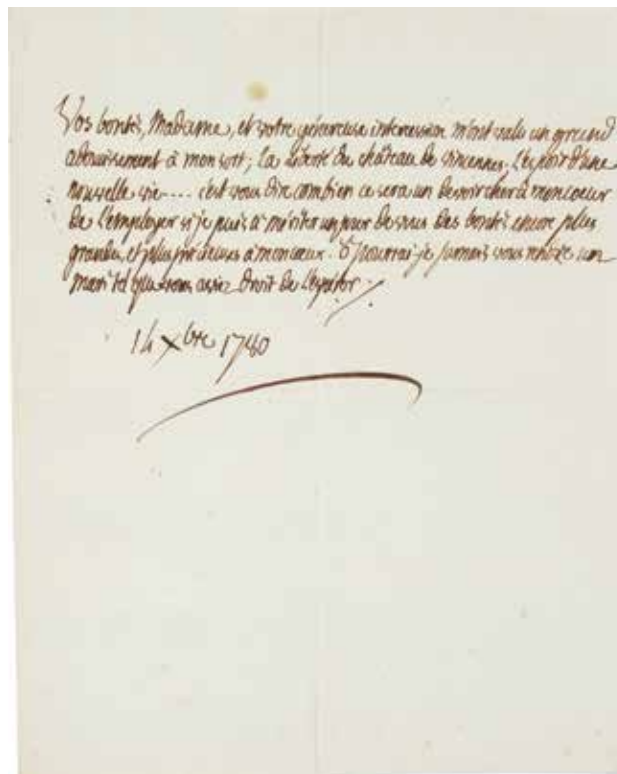 Vos bontés, Madame, et votre généreuse intercession m'ont valu un grand
adoucissement à mon sort; la liberté du château de vincennes, l'espoir d'une
nouvelle vie.... c'est vous dire combien ce sera un devoir cher à mon coeur
de l'employer si je puis à mériter un jour de vous des bontés encore plus
grandes, et plus précieuses à mon coeur. ô pourrai-je jamais vous rendre un
mari tel que vous aviez droit de l'espérer.
14 Xbre 1780